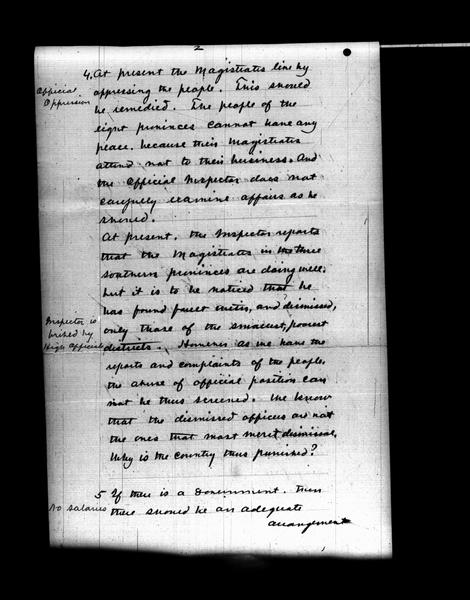 2
4. At present the Magistrates live by
Official
Oppression
oppressing the people. This should
be remedied. The people of the
eight provinces cannot have any
peace, because their Magistrates
attend not to their business. And
the Official Inspector does not
carefully examine affairs as he
should.
At present, the Inspector reports
that the Magistrates in the three
southern provinces are doing well.
but it is to be noticed that he
has found fault with, and dismissed,
Inspector is
bribed by
High Officials
only those of the smallest, poorest
districts. However as we have the
reports and complaints of the people,
the abuse of official position can
not be thus screened. We know
that the dismissed officers are not
the ones that most merit dismissal.
Why is the country thus punished?
5 If there is a Government, then
No salaries
there should be an adequate
arrangement